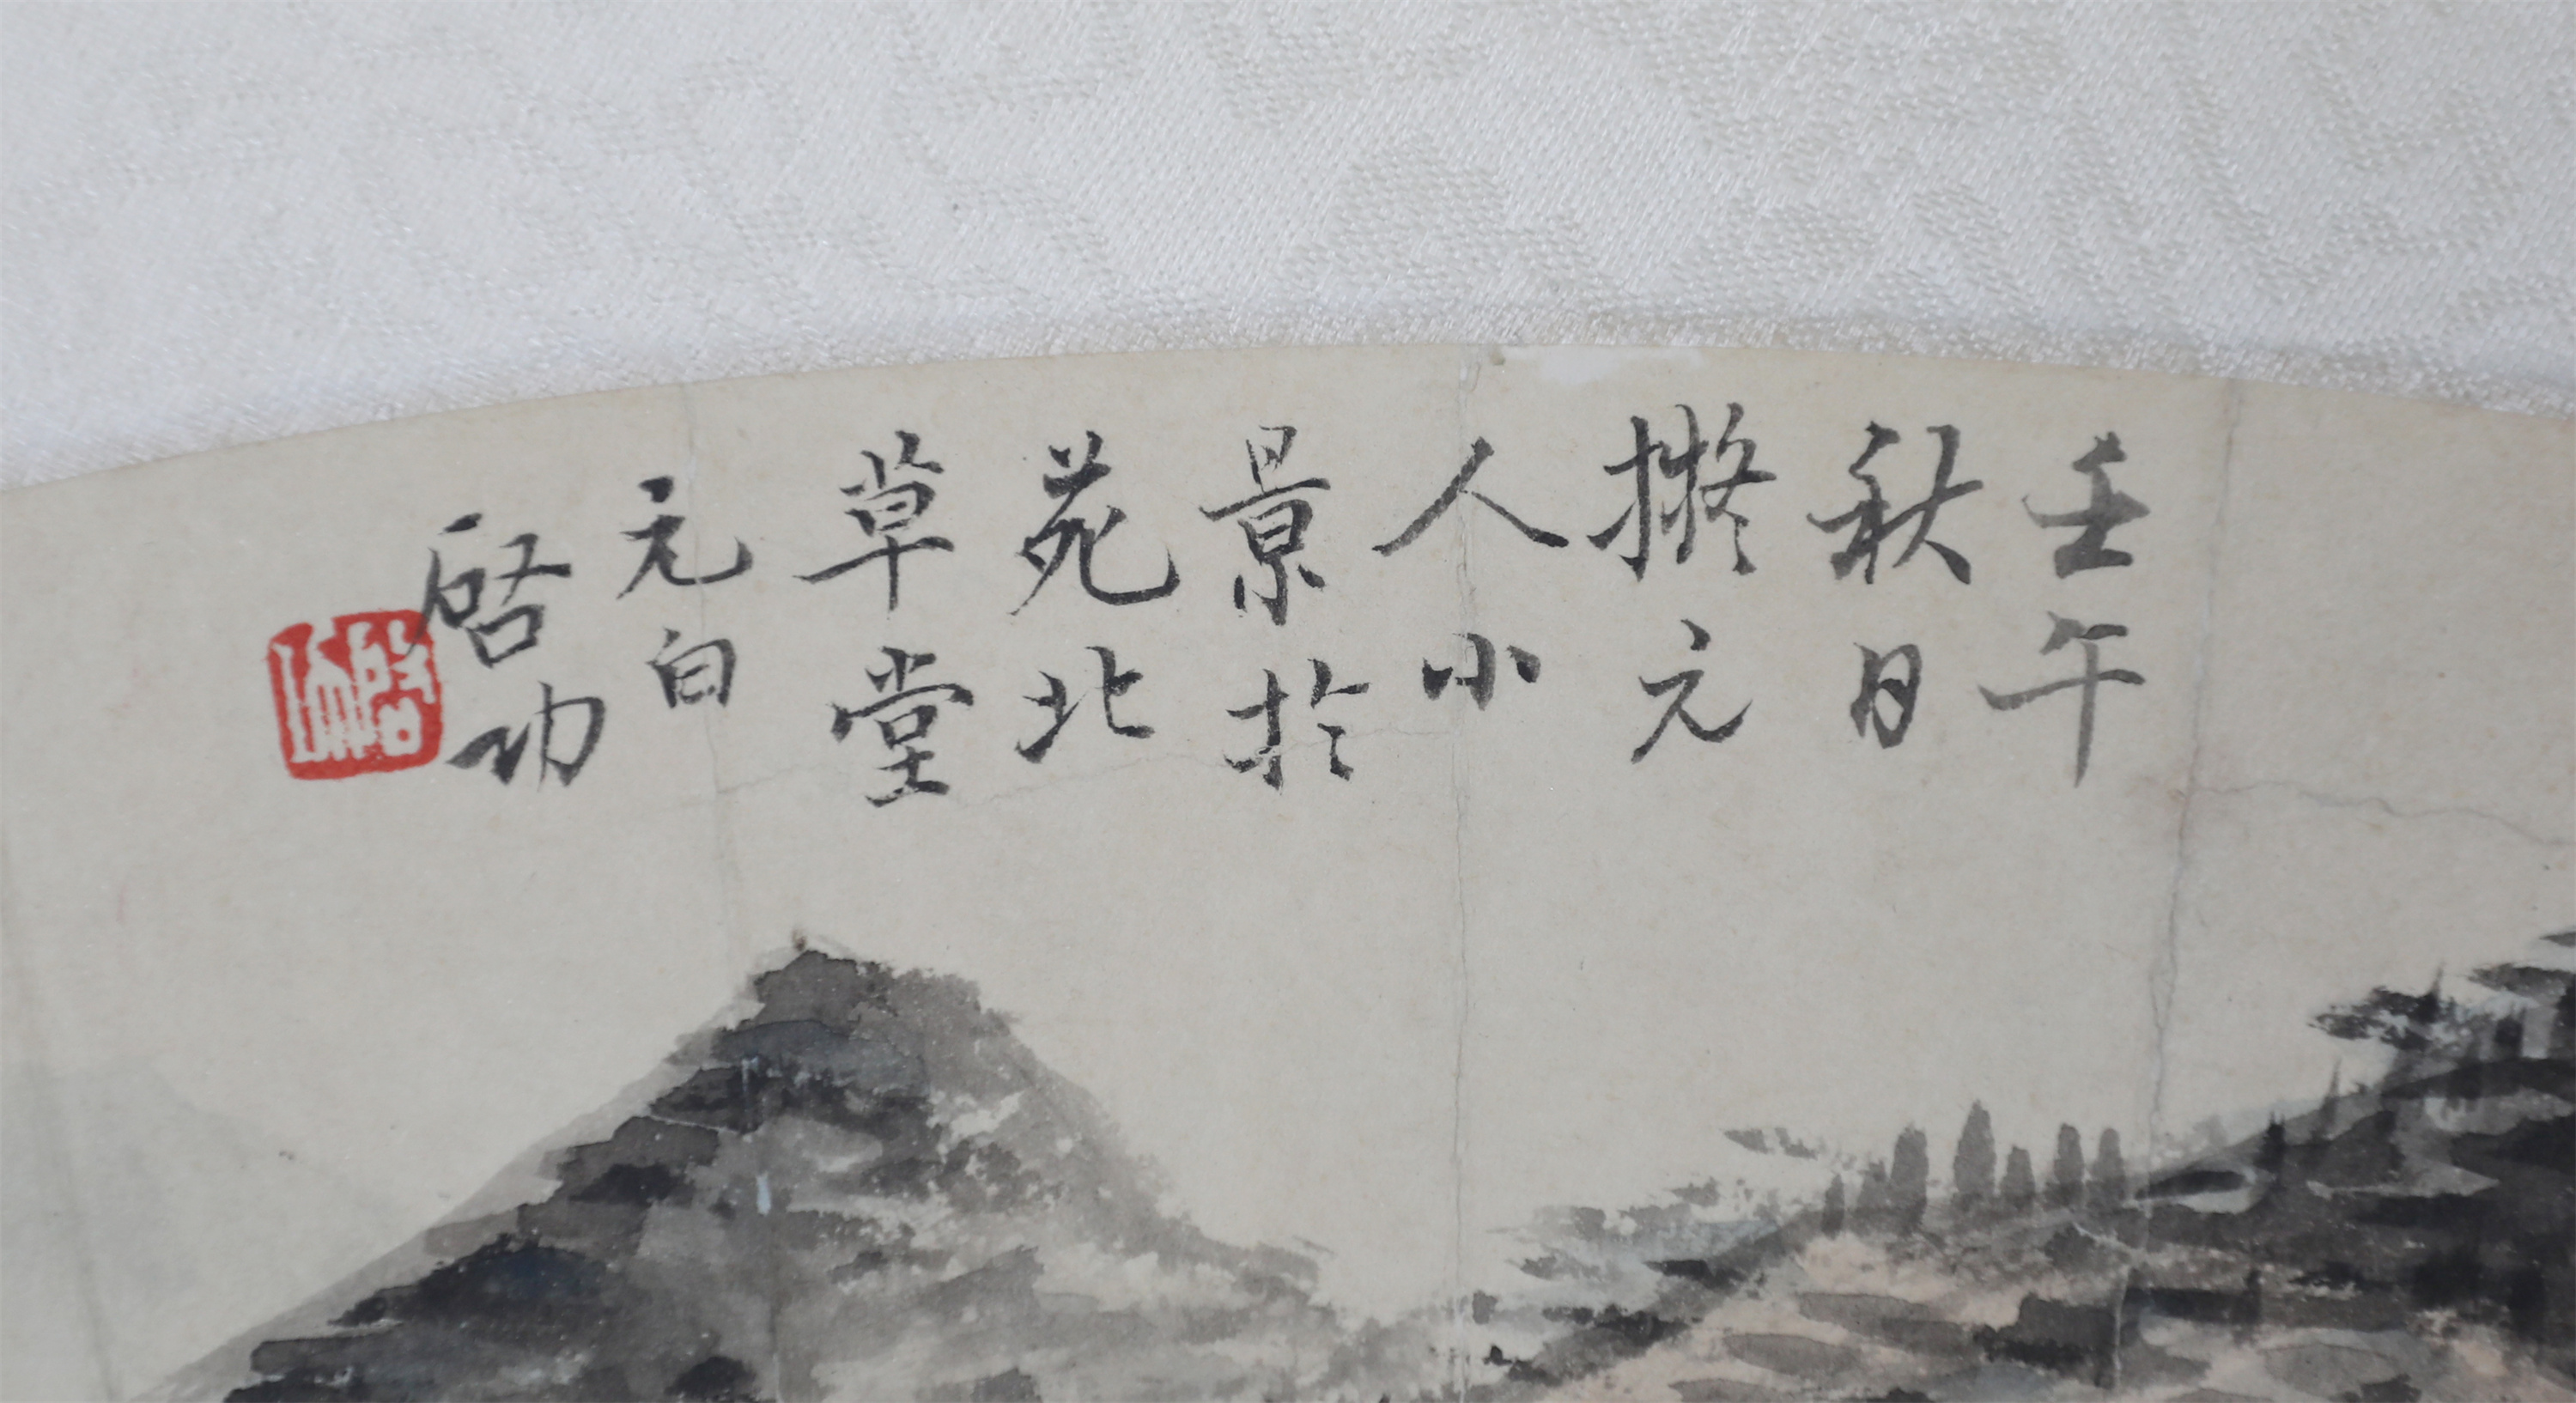 壬午
秋日
擬元
人小
景於
苑北
草堂
元白
啓功
啓功